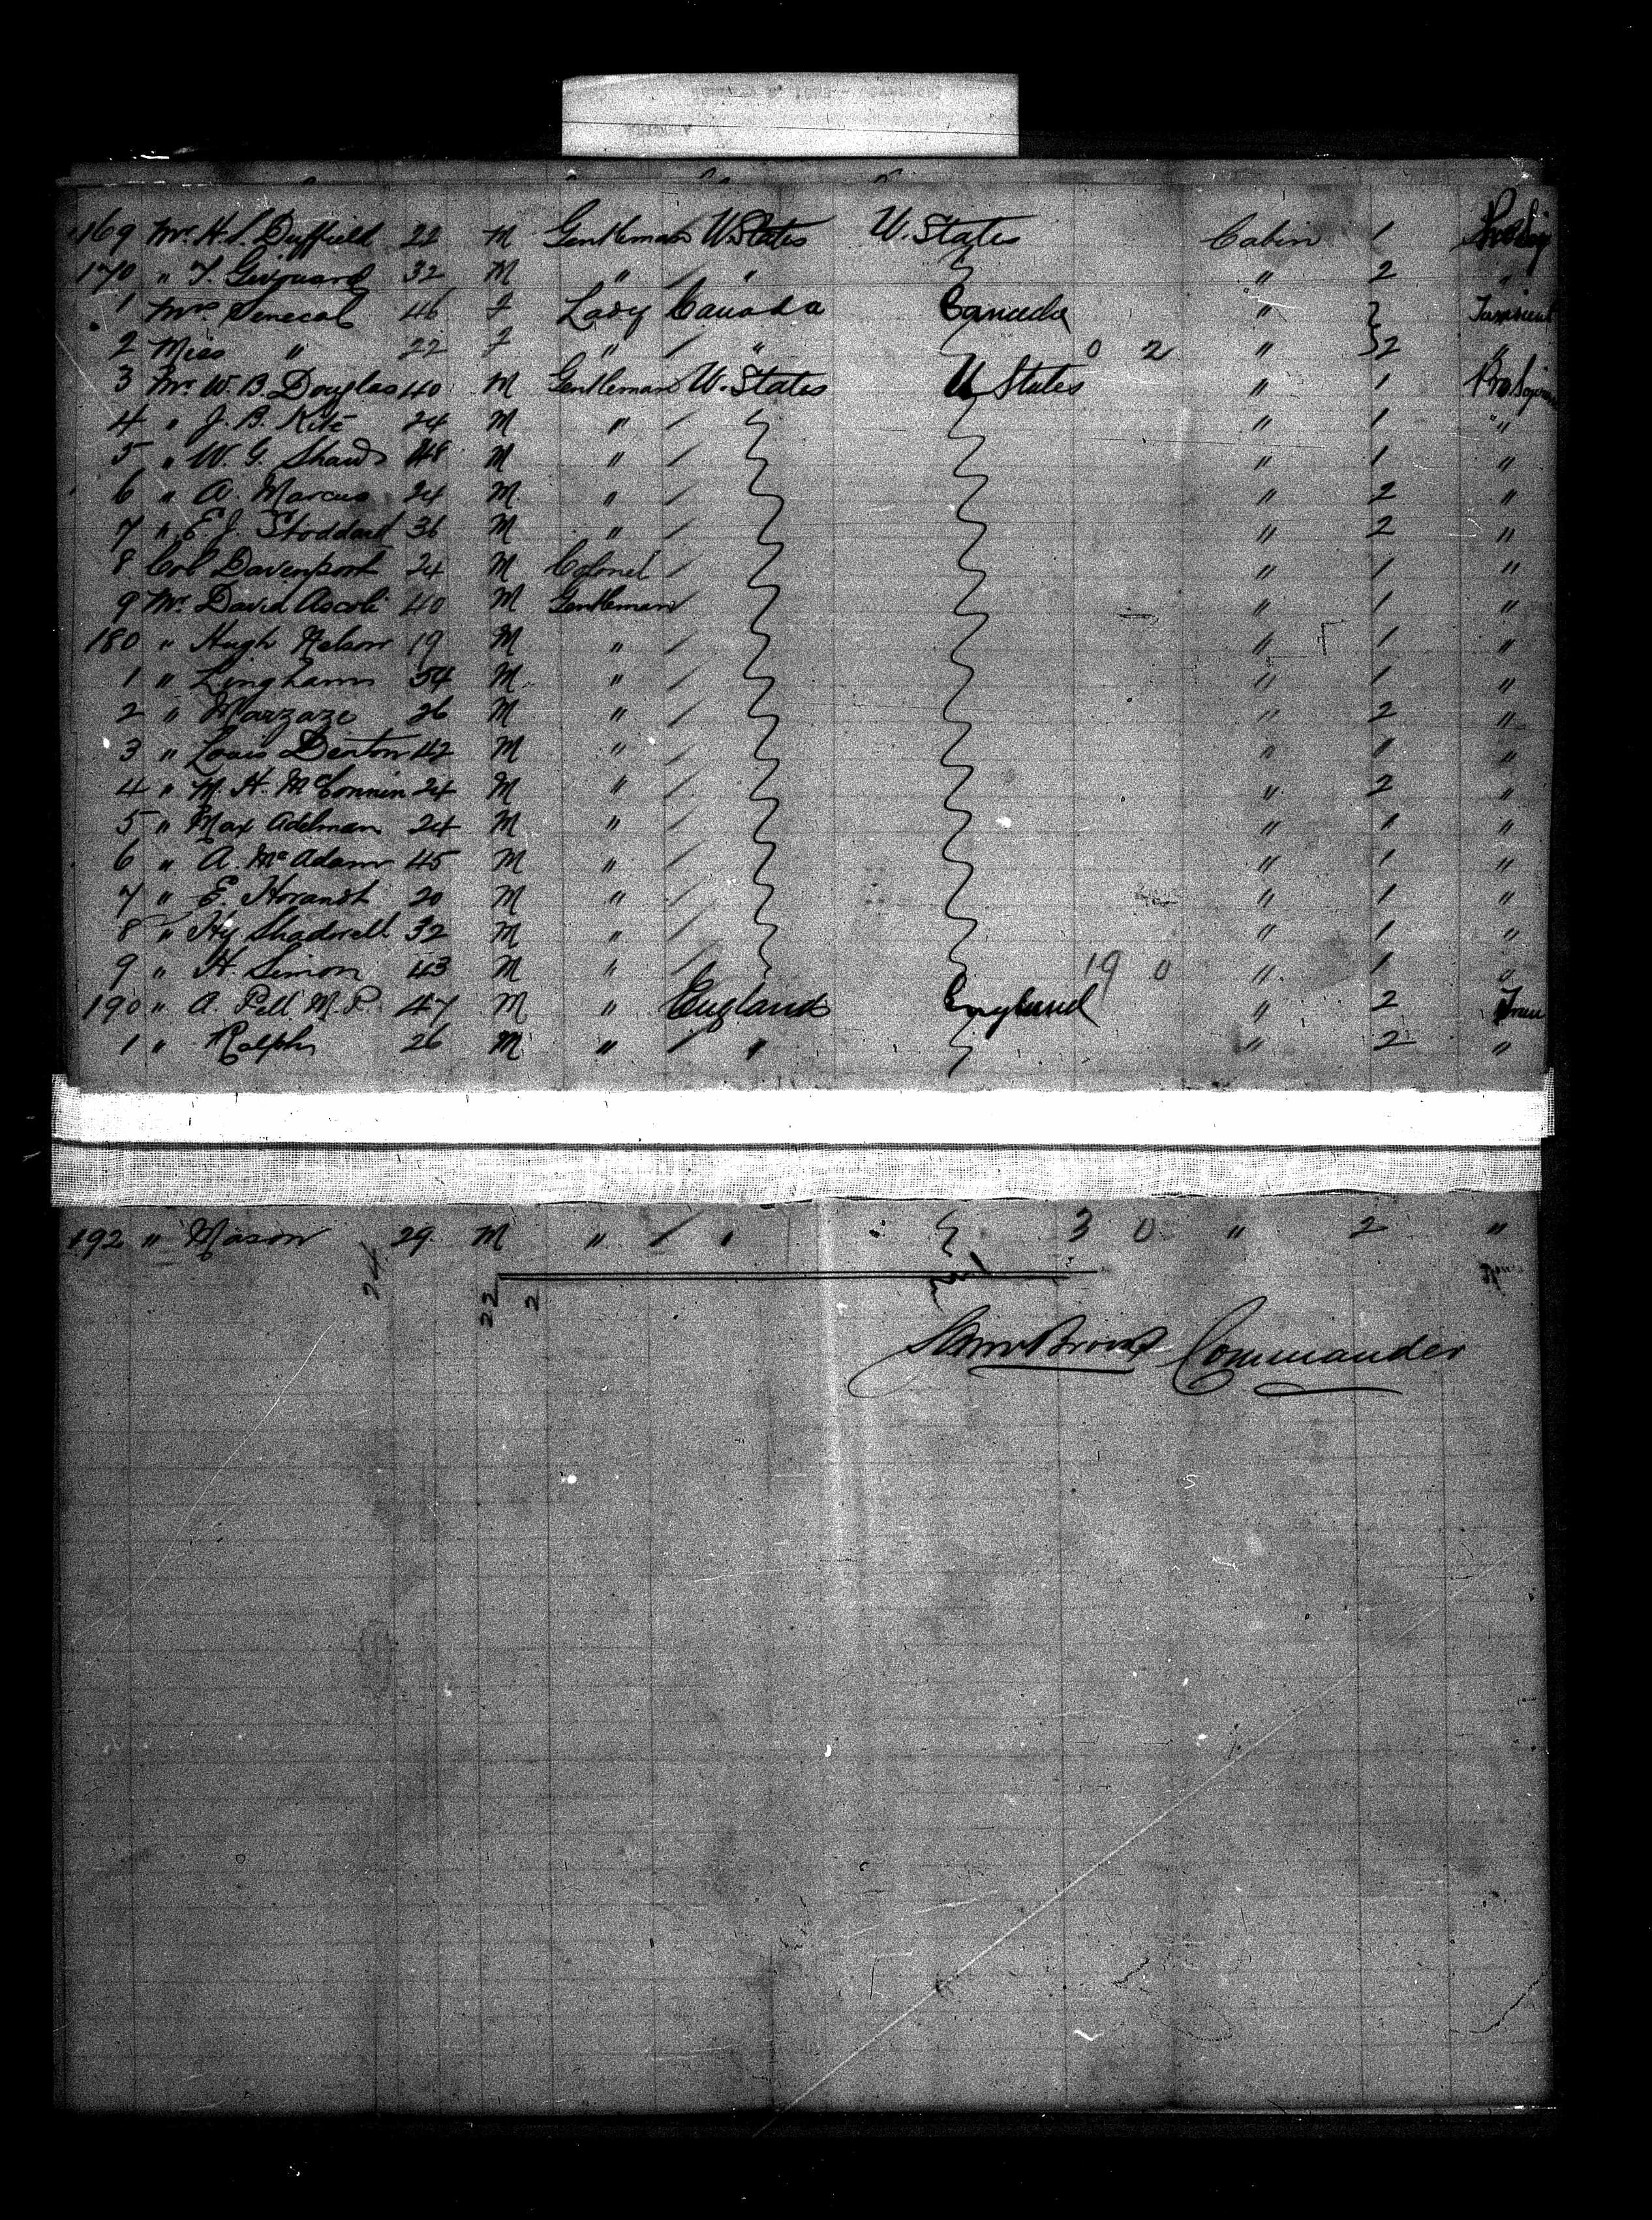 169 Mr. H. S. Duffield 22 M Gentleman U. States U. States Cabin 1
170 " T. 32 M " / " " 2 "
1 Mrs Senecal 46 F Lady Canada Canada " Transient
2 Miss " 22 F " / " 0 2 " 2 "
3 Mr. W. B. Douglas 40 M Gentleman U. States U States " 1
4 " J. B. Kite 24 M " / " 1 "
5 " W. G. Shaw 48 M " / " 1 "
6 " A. Marcus 24 M " / " 2 "
7 " E. J. Stoddard 36 M " / " 2 "
8 Col Davenport 24 M Colonel / " 1 "
9 Mr. David Ascoli 40 M Gentleman " 1 "
180 " Hugh Nelson 19 M " / " 1 "
1 " Lingham 54 M " / " 1 "
2 " 26 M " / " 2 "
3 " Louis Denton 42 M " / " " "
4 " 24 M " / " 2 "
5 " Max Adelman 24 M " / " 1 "
6 " A. McAdam 45 M " / " 1 "
7 " E. Horandt 20 M " / " 1 "
8 " Hy Shadwell 32 M " / " 1 "
9 " H. Simon 43 M " / 19 0 " 1 "
190 " A. Pell M.P. 47 M " England England " 2
1 " Ralph 26 M " / " " 2 "
192 " Mason 29 M " / " 3 0 " 2 "
24 22 2
Commander